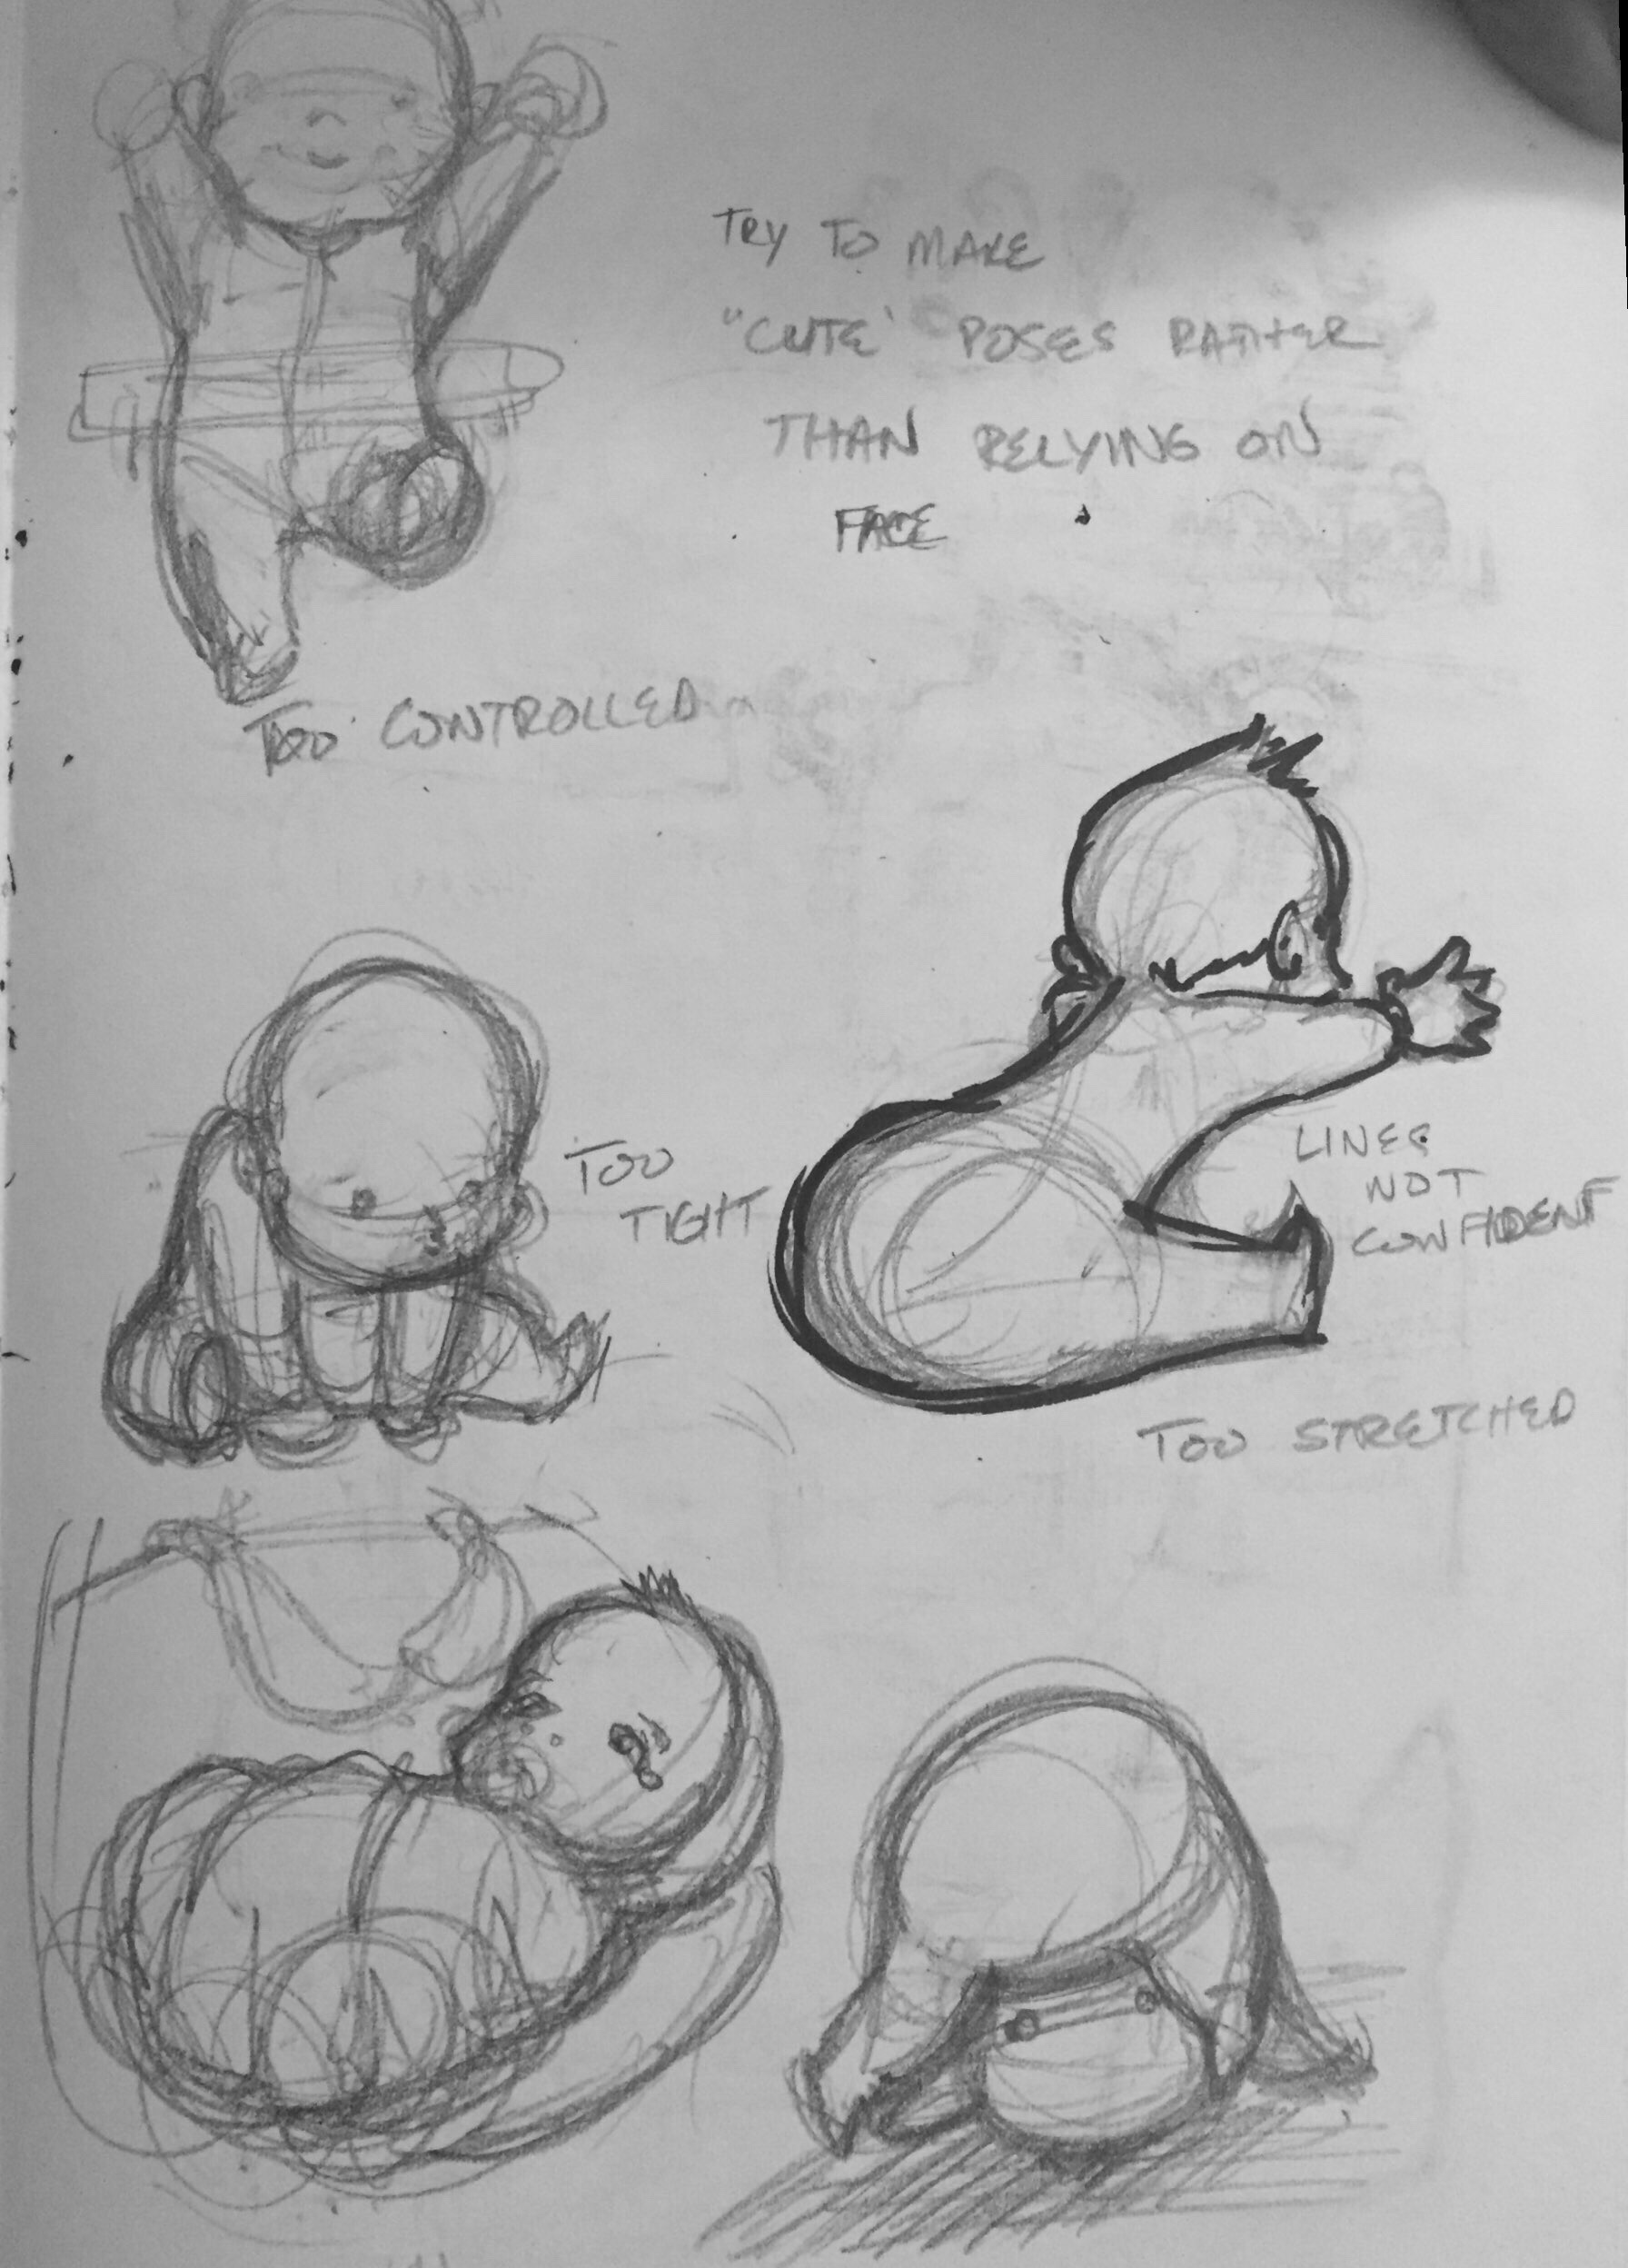 TRY TO MAKE
"CUTE' POSES RATHER
THAN RELYING ON
FACE
TOO CONTROLLED
TOO
TIGHT
LINES
NOT
CONFIDENT
TOO STRETCHED